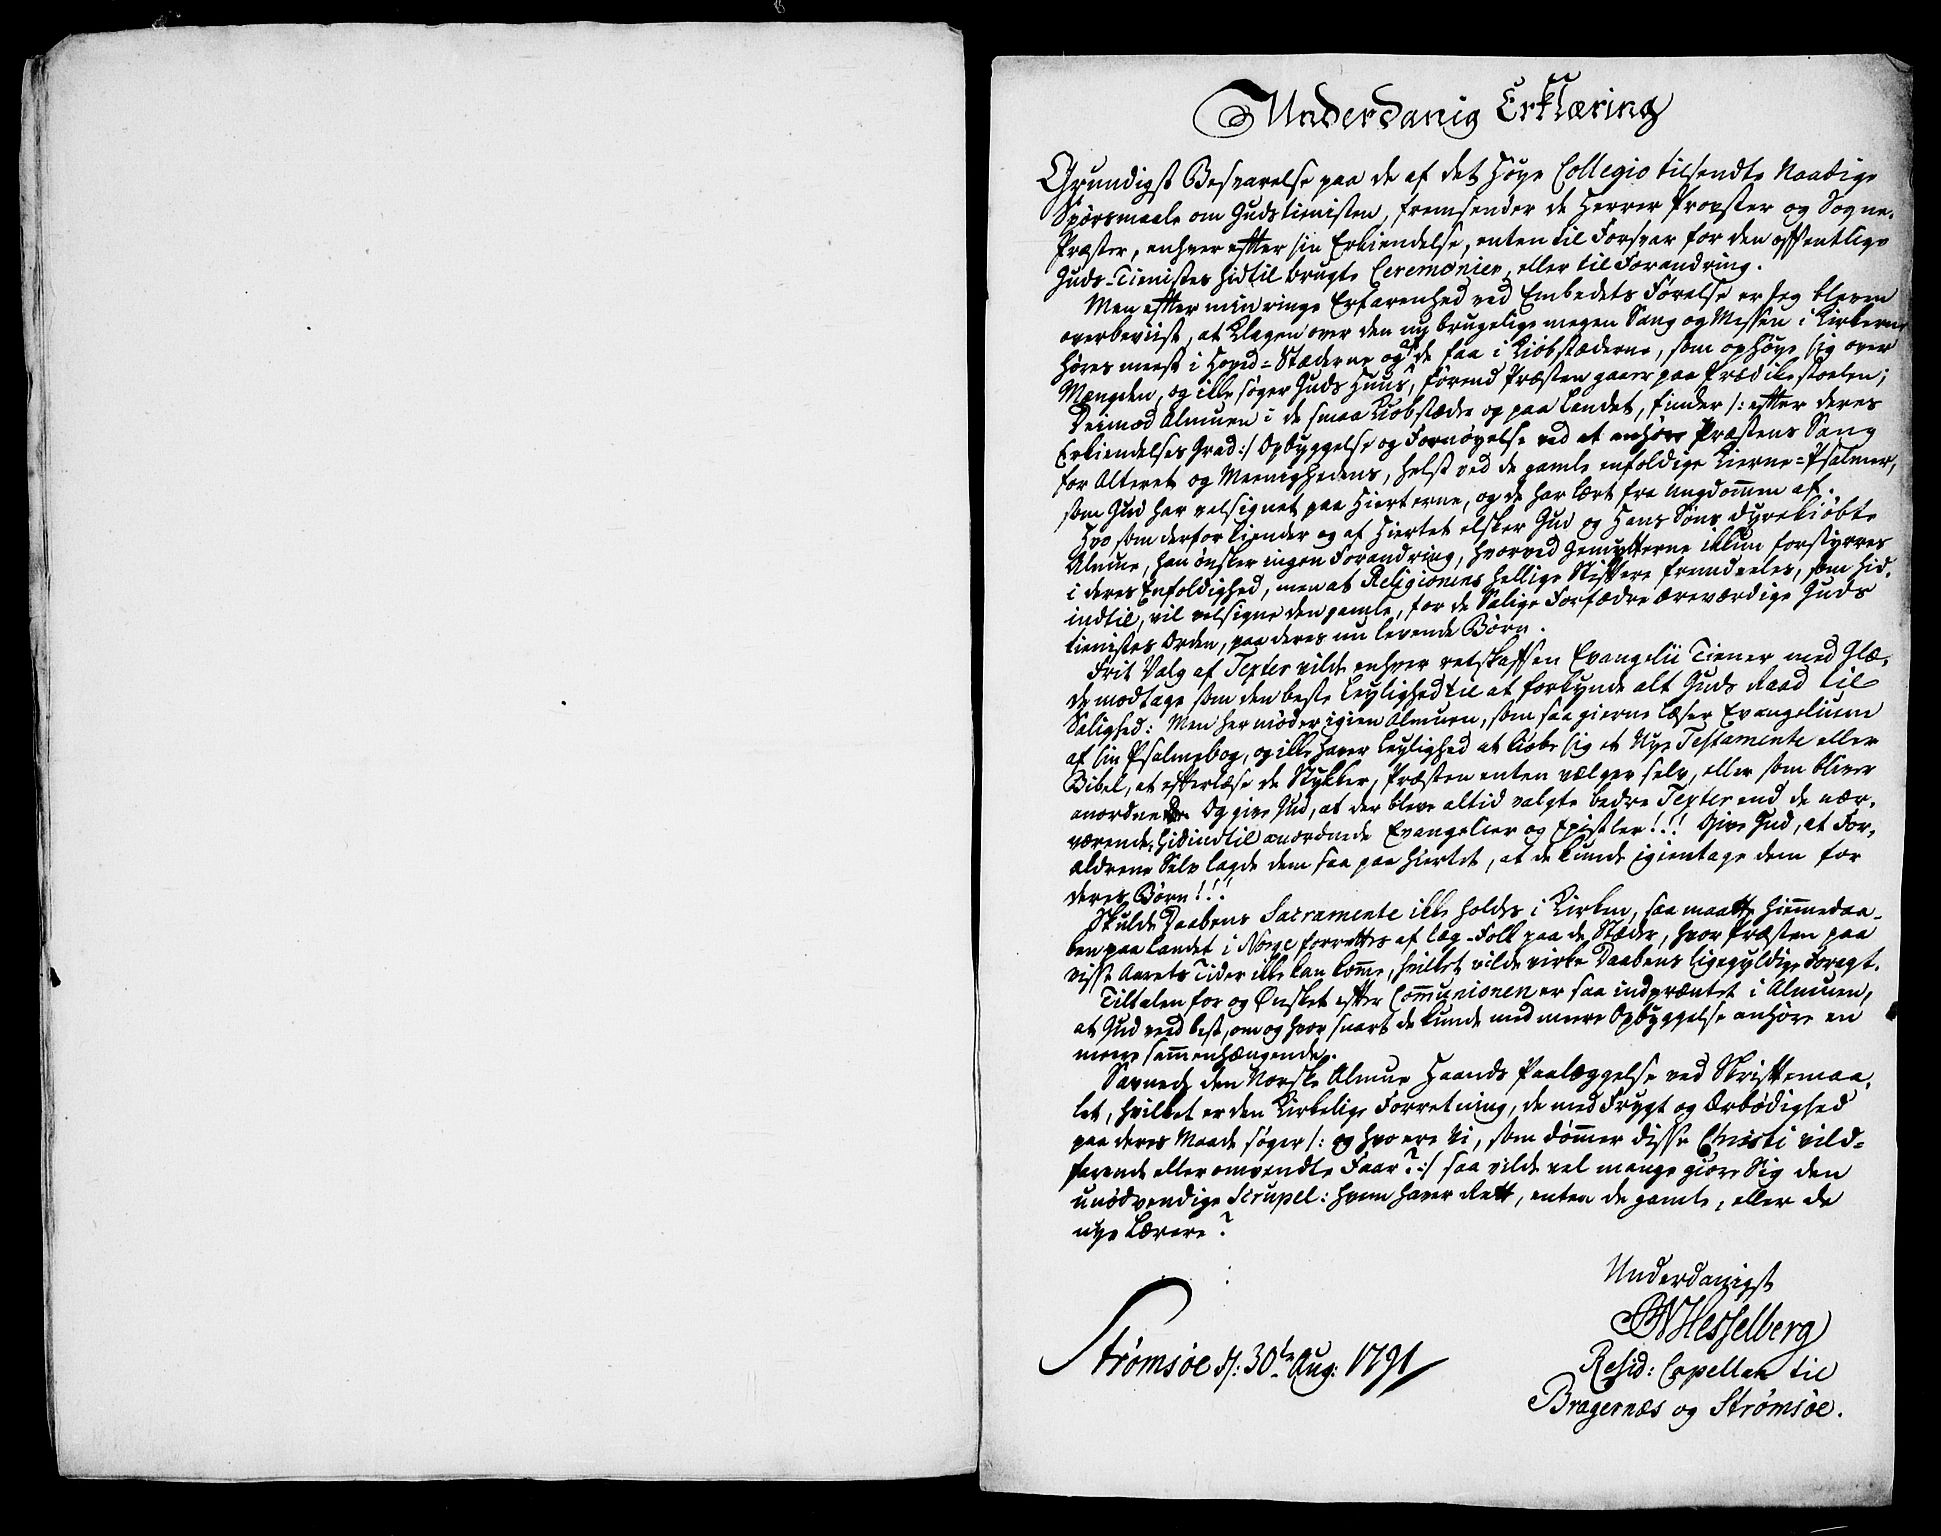 Underdanig Erklæring
Grundigst Besvarelse paa de af det Høye Collegio tilsendte Naadige
Spørsmaale om Gudstienisten, fremsender de Herrer Provster og Sogne-
Præster, enhver efter sin Erkiendelse, enten til Forsvar for den offentlige
Guds-Tienistes hidtil brugte Ceremonier, eller til Forandring.
Men efter min ringe Erfarenhed ved Embedets Førelse er jeg bleven
overbeviist, at Klagen over den nu brugelige megen Sang og Messen i Kirkerne
høres meest i Hoved-Stæderne og de faa i Kiøbstæderne, som ophøye sig over
Mængden, og ikke søger Guds Huus, førend Præsten gaaer paa Prædikestoelen;
Derimod Almuen i de smaa Kiøbstæder og paa Landet, finder /: efter deres
Erkiendelses Grad :/ Opbyggelse og Fornøyelse ved at anhøre Præstens Sang
for Alteret og Meenighedens, helst ved de gamle enfoldige Kierne-Psalmer,
som Gud har velsignet paa Hierterne, og de har lært fra Ungdommen af.
Hvo som derfor kiender og af Hiertet elsker Gud og Hans Søns dyrekiøbte
Almue, han ønsker ingen Forandring, hvorved Gemytterne ikkun forstyrres
i deres Enfoldighed, men at Religionens hellige Stiftere fremdeeles, som hid-
indtil, vil velsigne den gamle, for de Salige Forfædre æreværdige Guds
tienistes Orden, paa deres nu levende Børn.
Frit Valg af Texter vilde enhver retskaffen Evangelii Tiener med Glæ-
de modtage som den beste Leylighed til at forkynde alt Guds Raad til
Salighed: Men her møder igien Almuen, som saa gierne læser Evangelium
af sin Psalmebog, og ikke haver Leylighed at kiøbe sig et Nye Testamente eller
Bibel, at efterlæse de Stykker, Præsten enten vælger selv, eller som bliver
anordnede. Og give Gud, at der bleve altid valgte bedre Texter end de nær-
værende, hidindtil anordnede Evangelier og Epistler!!! Give Gud, at For-
ældrene Selv lagde dem saa paa Hiertet, at de kunde igientage dem for
deres Børn!!!
Skulde Daabens Sacramente ikke holdes i Kirken, saa maatte Hiemmedaa-
ben paa Landet i Norge forrettes af Læg-Folk paa de Stæder, hvor Præsten paa
visse Aarets Tider ikke kan komme, hvilket vilde virke Daabens ligegyldige Foragt.
Tiltalen for og Ønsket efter Communionen er saa indpræntet i Almuen,
at Gud veed best, om og hvor snart de kunde med meere Opbyggelse anhøre en
mere sammenhængende.
Savnede den Norske Almue Haands Paalæggelse ved Skriftemaa-
let, hvilket er den Kirkelige Forretning, de med Frygt og Ærbødighed
paa deres Maade søger /: og hvo ere Vi, som dømmer disse Christi vild-
farende eller omvendte Faar? :/ saa vilde vel mange giøre Sig den
unødvendige Scrupel: hvem haver Rett, enten de gamle, eller de
nye Lærere?
Underdanigst
Hesselberg
Resid: Capellan til
Bragernæs og Strømsøe.
Strømsøe d: 30te Aug: 1791